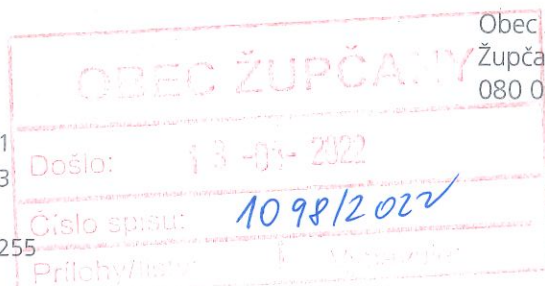 Obec
Župča
080 0
OBEC ŽUPČANY
1
Došlo:
2022
3
Číslo spisu: 1098/2022
255
Prílohy/listy: